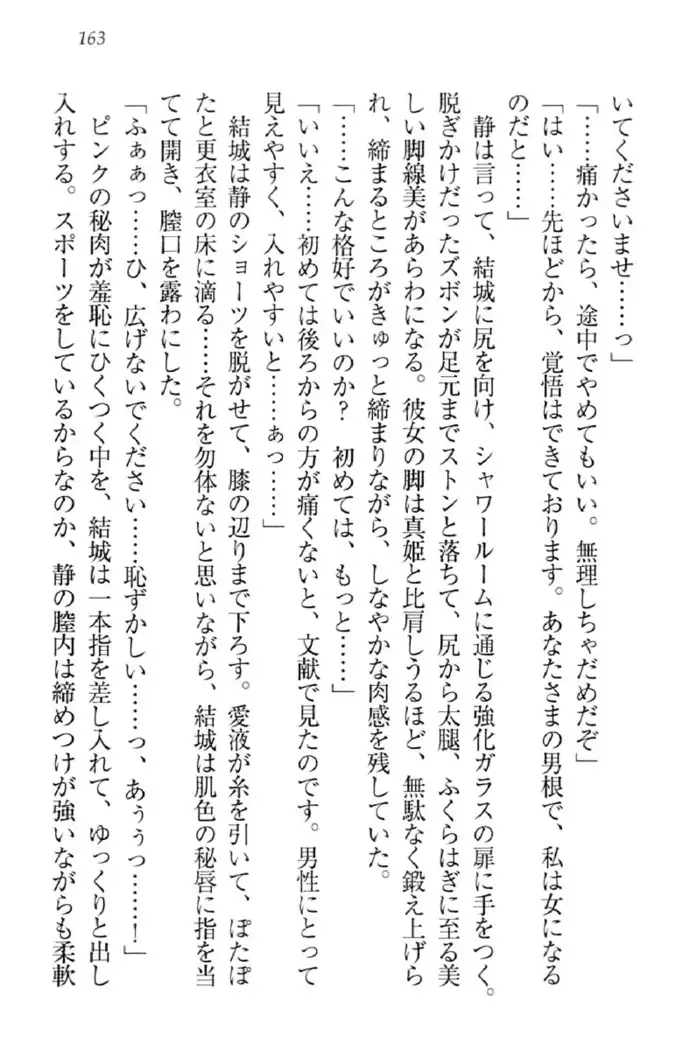 163
いてくださいませ……っ」
「……痛かったら、途中でやめてもいい。無理しちゃだめだぞ」
「はい……先ほどから、覚悟はできております。あなたさまの男根で、私は女になる
のだと……」
静は言って、結城に尻を向け、シャワールームに通じる強化ガラスの扉に手をつく。
脱ぎかけだったズボンが足元までストンと落ちて、尻から太腿、ふくらはぎに至る美
しい脚線美があらわになる。彼女の脚は真姫と比肩しうるほど、無駄なく鍛え上げら
れ、締まるところがきゅっと締まりながら、しなやかな肉感を残していた。
「……こんな格好でいいのか？　初めては、もっと……」
「いいえ……初めては後ろからの方が痛くないと、文献で見たのです。男性にとって
見えやすく、入れやすいと……ぁっ……」
結城は静のショーツを脱がせて、膝の辺りまで下ろす。愛液が糸を引いて、ぽたぽ
たと更衣室の床に滴る……それを勿体ないと思いながら、結城は肌色の秘唇に指を当
てて開き、膣口を露わにした。
「ふぁぁっ……ひ、広げないでください……恥ずかしい……っ、あぅぅっ……！」
ピンクの秘肉が羞恥にひくつく中を、結城は一本指を差し入れて、ゆっくりと出し
入れする。スポーツをしているからなのか、静の膣内は締めつけが強いながらも柔軟